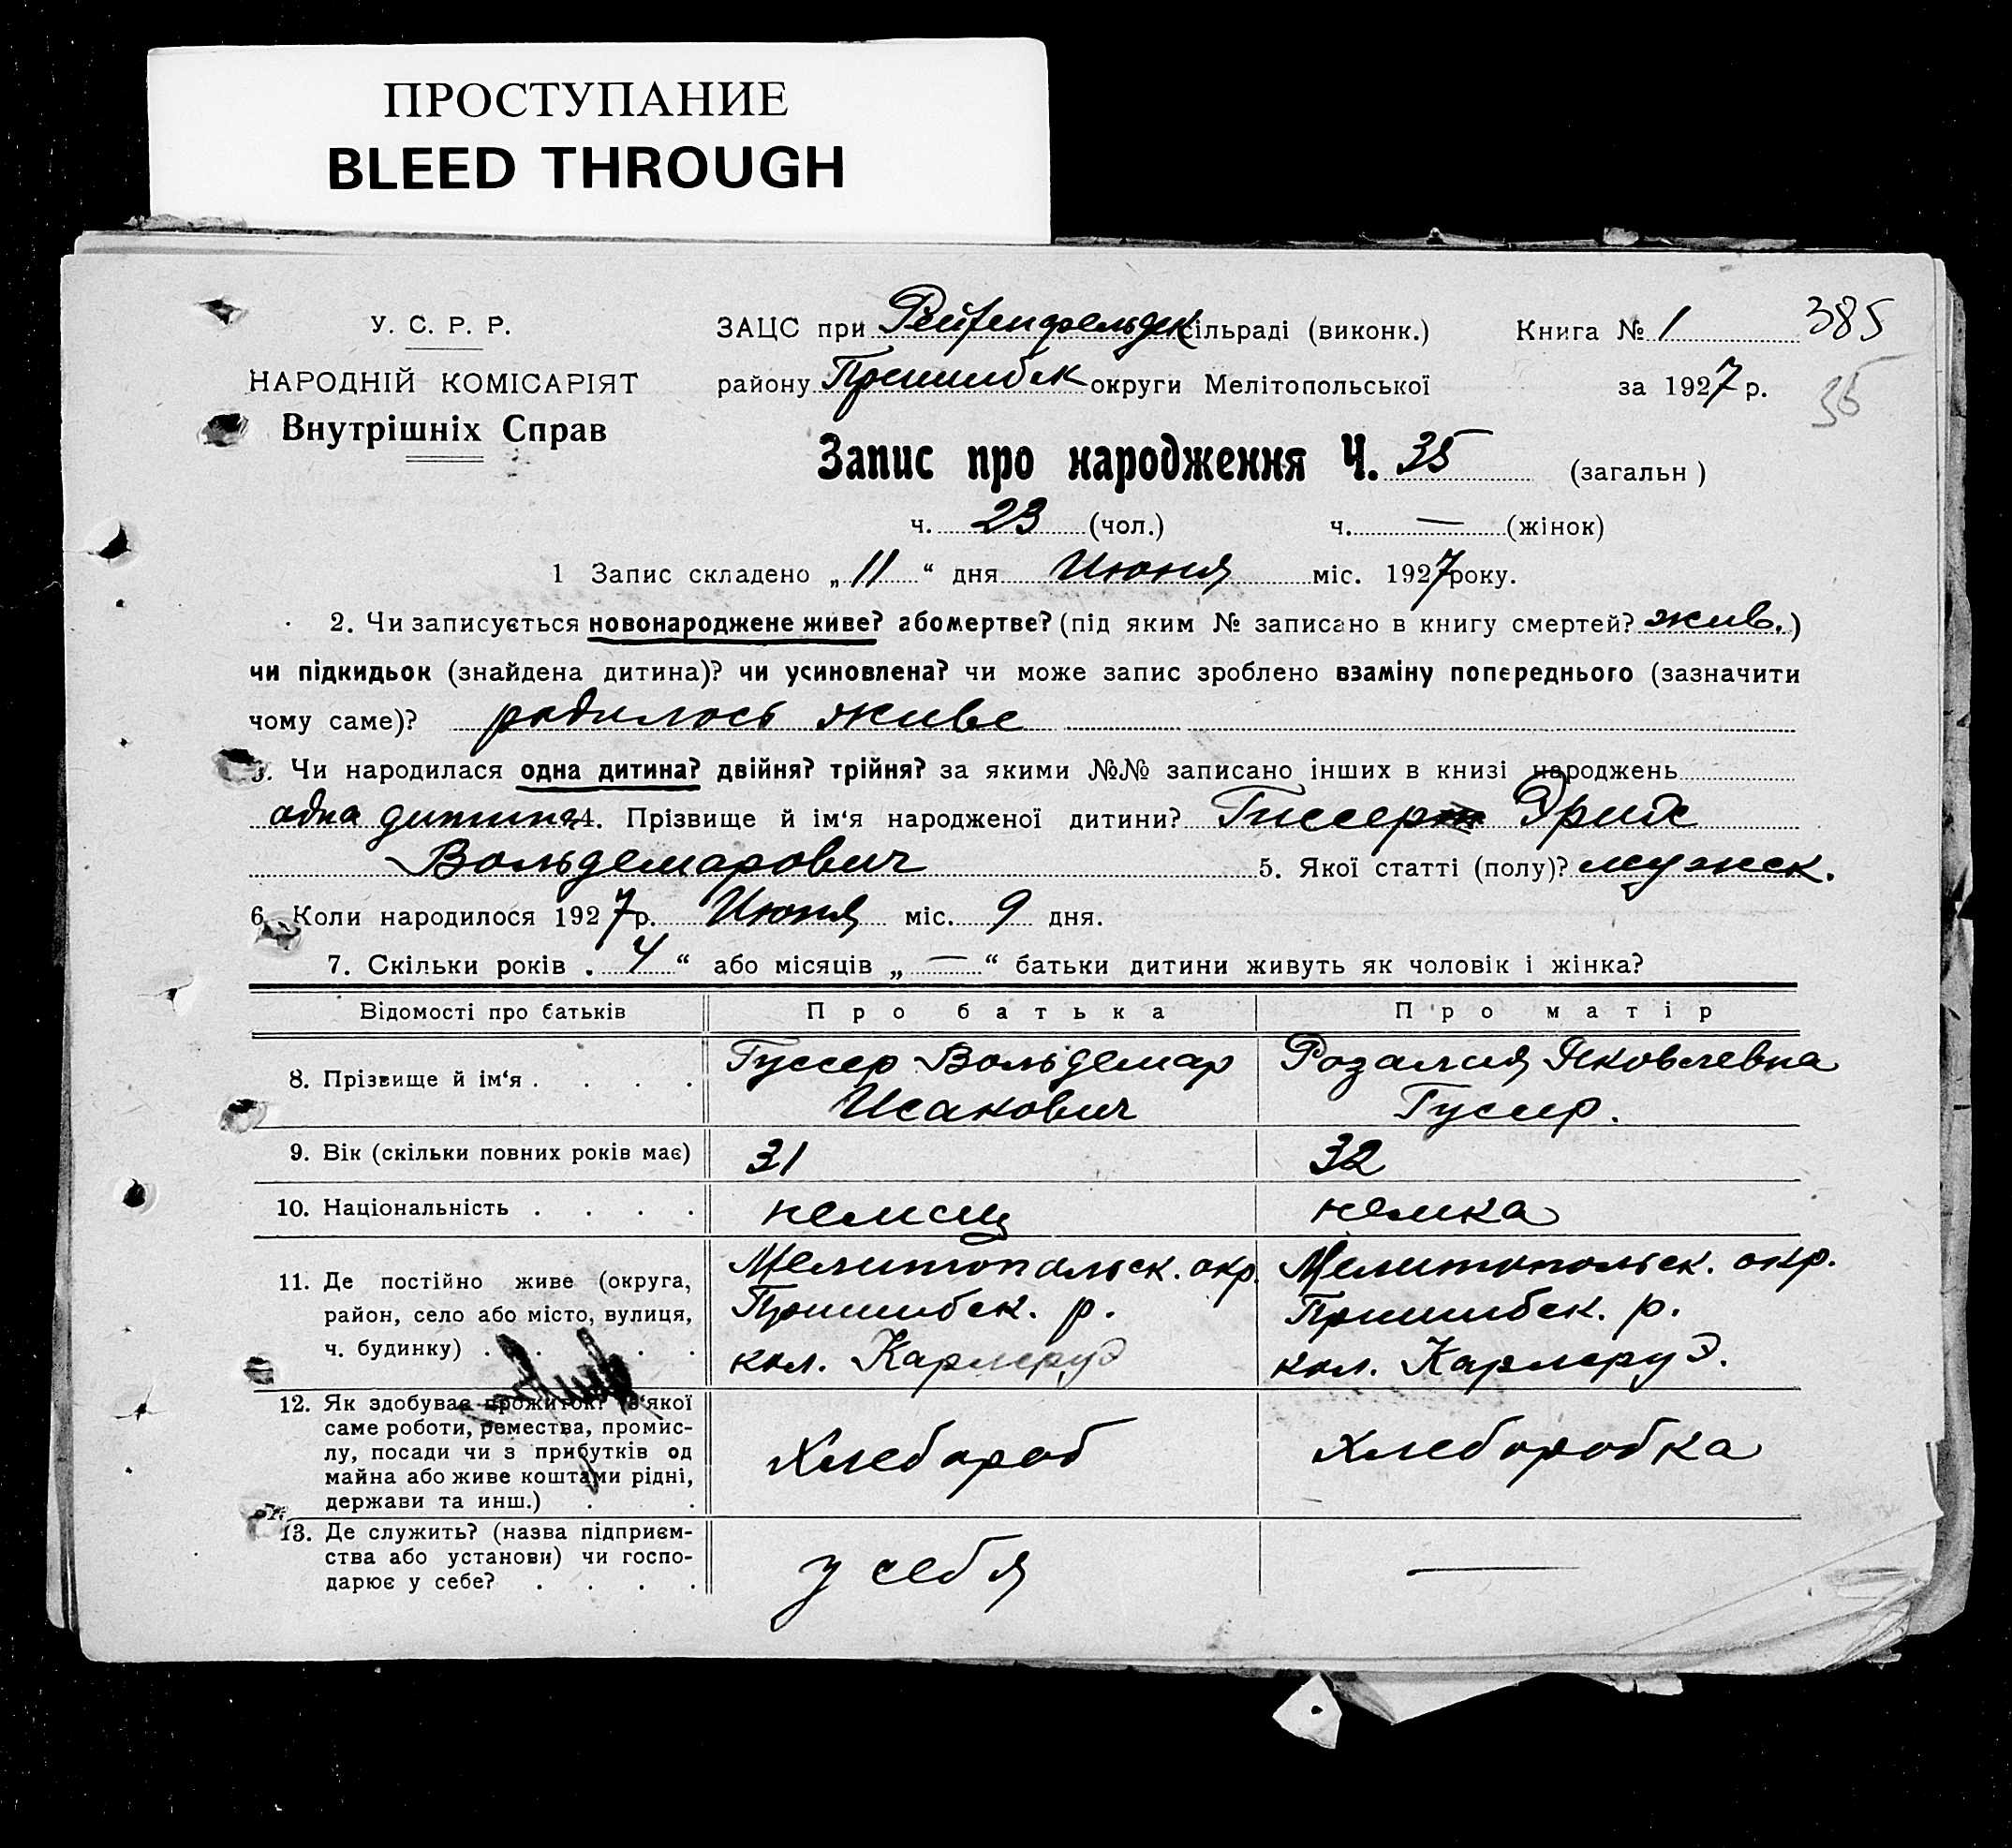 ПРОСТУПАНИЕ
BLEED THROUGH
У. С. Р. Р.
НАРОДНІЙ КОМІСАРІЯТ
Внутрішніх Справ
ЗАЦС при Рейхенфельдск сільраді (виконк.) Книга № 1 385
району Пришибск округи Мелітопольської за 1927 р.
35
Запис про народження Ч. 35 (загальн)
ч. 23 (чол.) ч. — (жінок)
1 Запис складено „11“ дня Июня міс. 1927 року.
2. Чи записується новонароджене живе? або мертве? (під яким № записано в книгу смертей? жив.)
чи підкидьок (знайдена дитина)? чи усиновлена? чи може запис зроблено взаміну попереднього (зазначити
чому саме)? родилось живе
3. Чи народилася одна дитина? двійня? трійня? за якими №№ записано інших в книзі народжень
одна дитина 4. Прізвище й ім‘я народженої дитини? Гиссер Эрих
Вольдемарович 5. Якої статті (полу)? мужск.
6. Коли народилося 1927 р. Июня міс. 9 дня.
7. Скільки років „4“ або місяців „—“ батьки дитини живуть як чоловік і жінка?
Відомості про батьків Про батька Про матір
8. Прізвище й ім‘я . . . . Гуссер Вольдемар Исакович
Розалия Яковлевна Гуссер.
9. Вік (скільки повних років має) 31 32
10. Національність . . . . немец немка
11. Де постійно живе (округа,
район, село або місто, вулиця,
ч. будинку) . . . .
Мелитопольск. окр.
Пришибск. р.
кол. Карлсруэ
Мелитопольск. окр.
Пришибск. р.
кол. Карлсруэ.
12. Як здобуває прожиток? (з‘якої
саме роботи, ремества, промис-
лу, посади чи з прибутків од
майна або живе коштами рідні,
держави та инш.) . .
Хлебороб хлеборобка
13. Де служить? (назва підприєм-
ства або установи) чи госпо-
дарює у себе? . . . .
у себя —